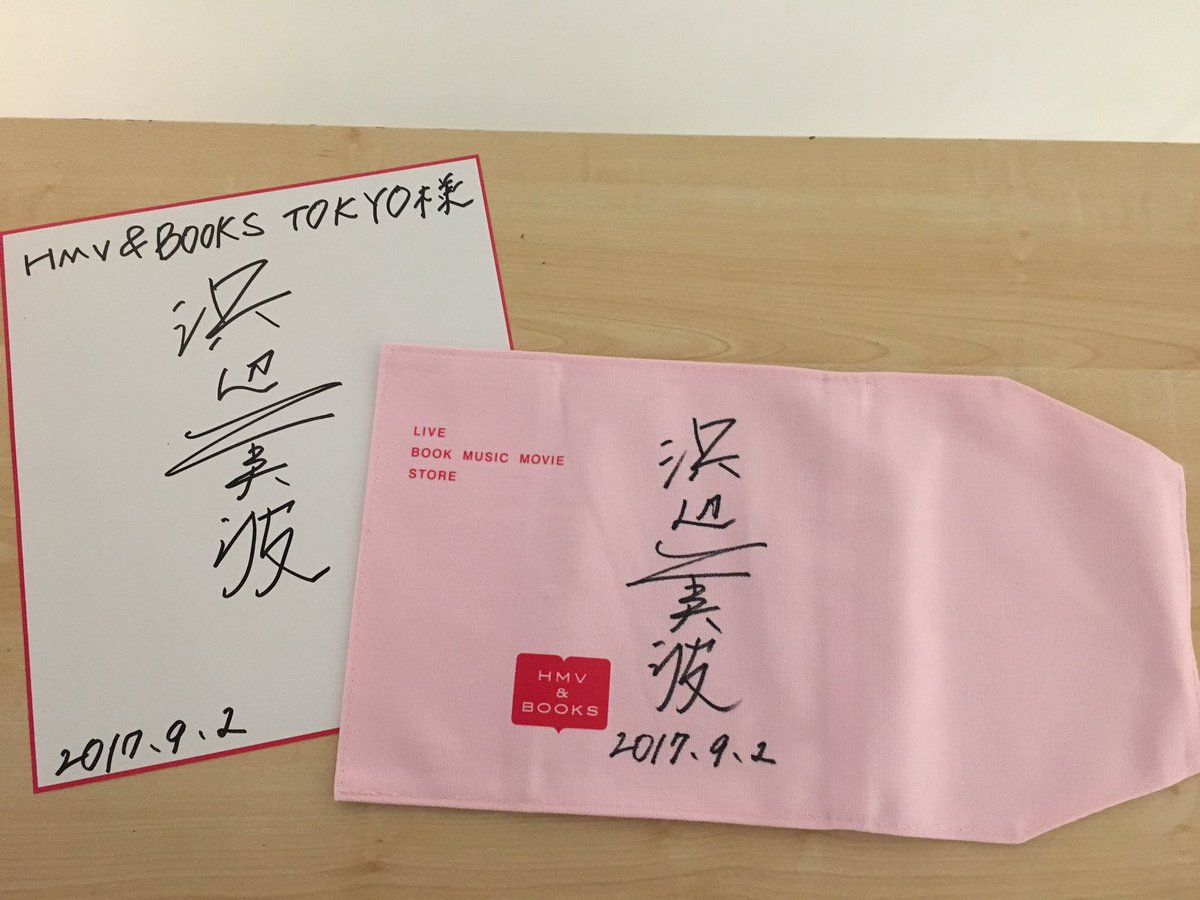 HMV&BOOKS TOKYO様
浜辺美波
2017.9.2
LIVE
BOOK MUSIC MOVIE
STORE
浜辺美波
HMV
&
BOOKS
2017.9.2